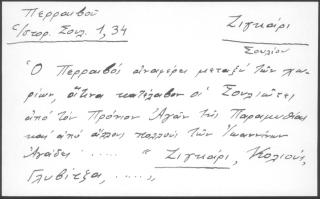 Περραιβού
Ἱστορ. Σουλ. 1, 34
Ζιγκάρι
Σουλίου
Ὁ Περραιβός ἀναφέρει μεταξύ τῶν χω-
ρίων, ἅτινα κατέλαβον οἱ Σουλιῶται
ἀπό τόν Πρόνιον Ἀγᾶν τῆς Παραμυθίας
καί ἀπό ἄλλους πολλούς τῶν Ἰωαννίνων
Ἀγάδες ..... " Ζιγκάρι, Κολιούς,
Γλυβίτζα, ..... "